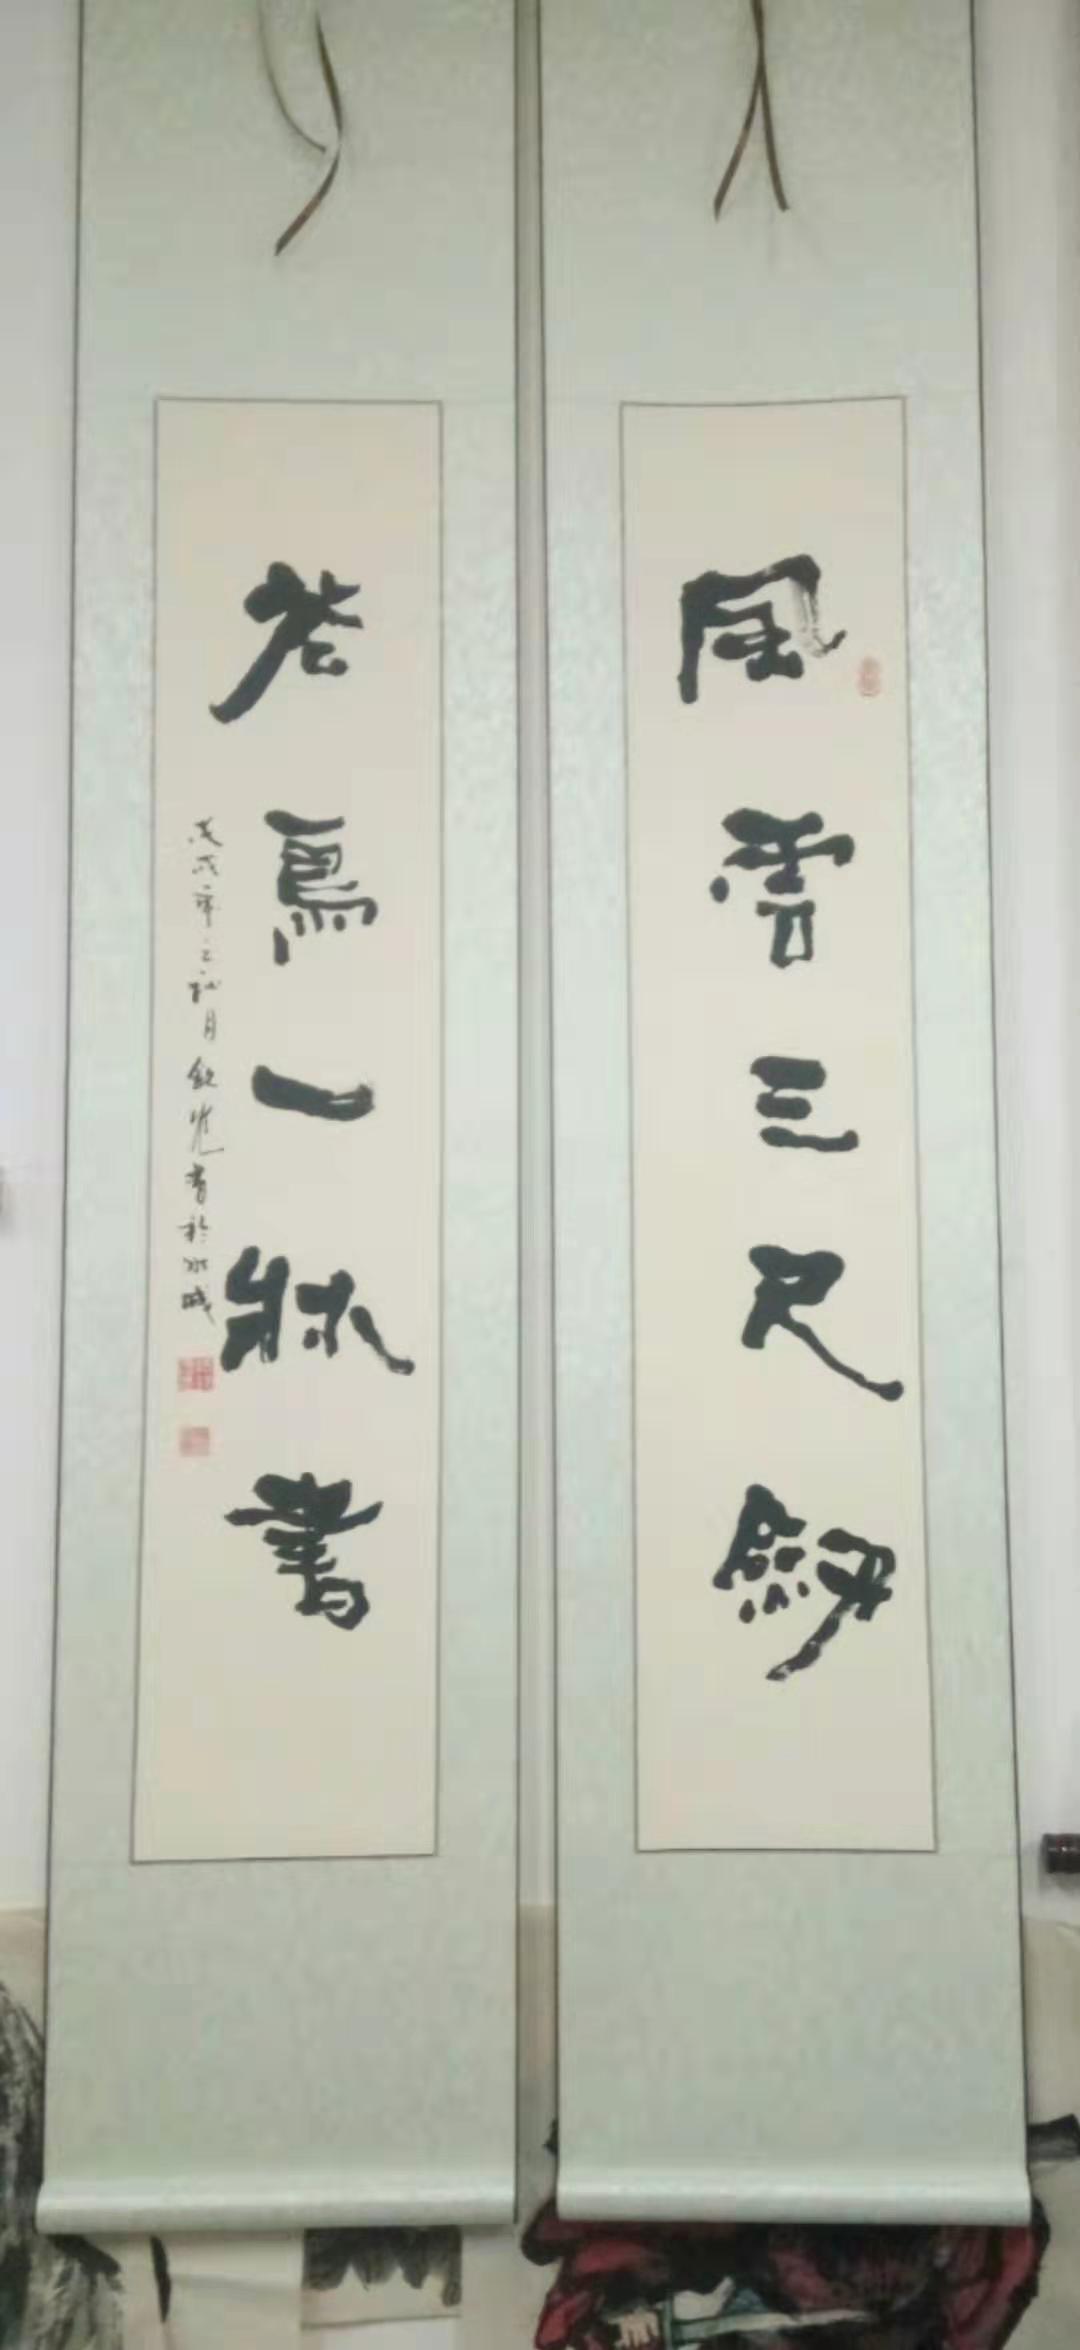 風雲三尺劍
花鳥一牀書
戊戌年之秋月 書於冰城